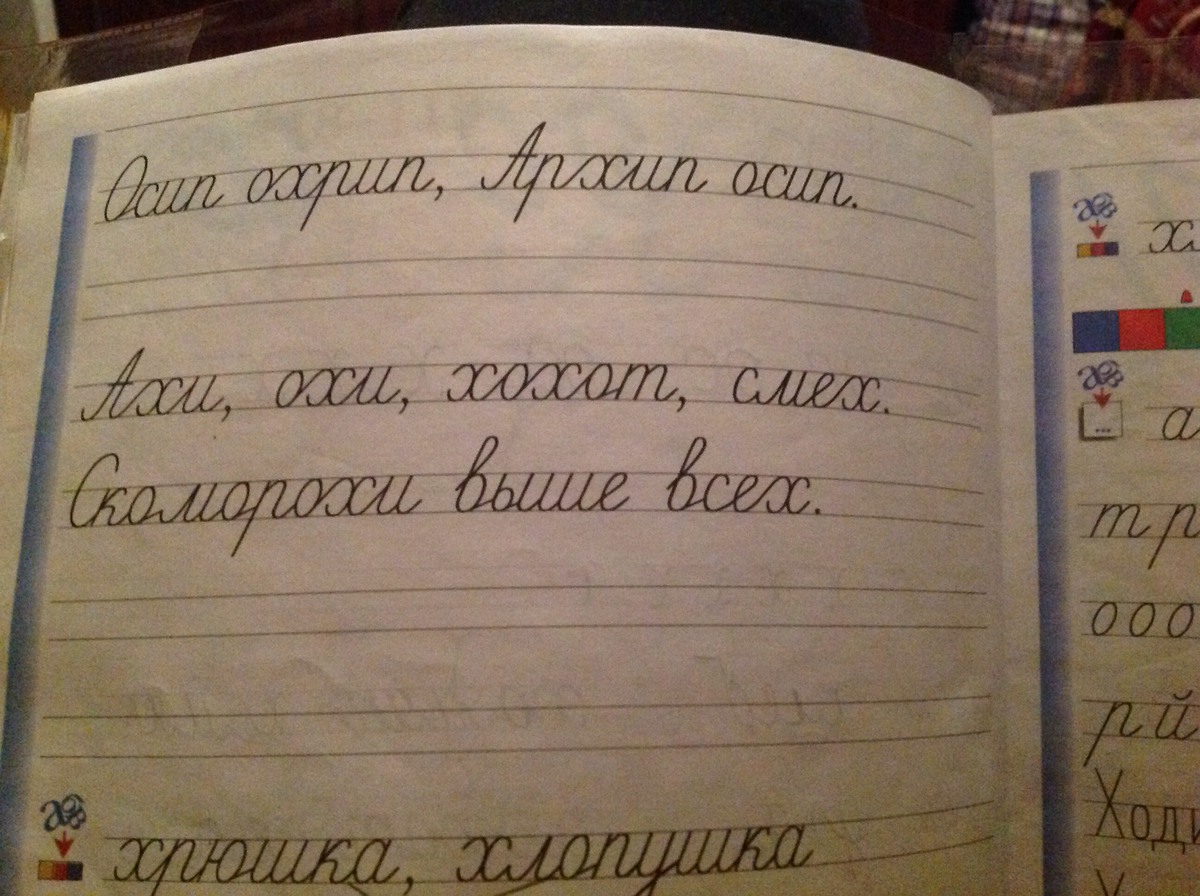 Осип охрип, Архип осип.
Ахи, охи, хохот, смех.
Скоморохи выше всех.
хрюшка, хлопушка
а
т р
о о о
р й